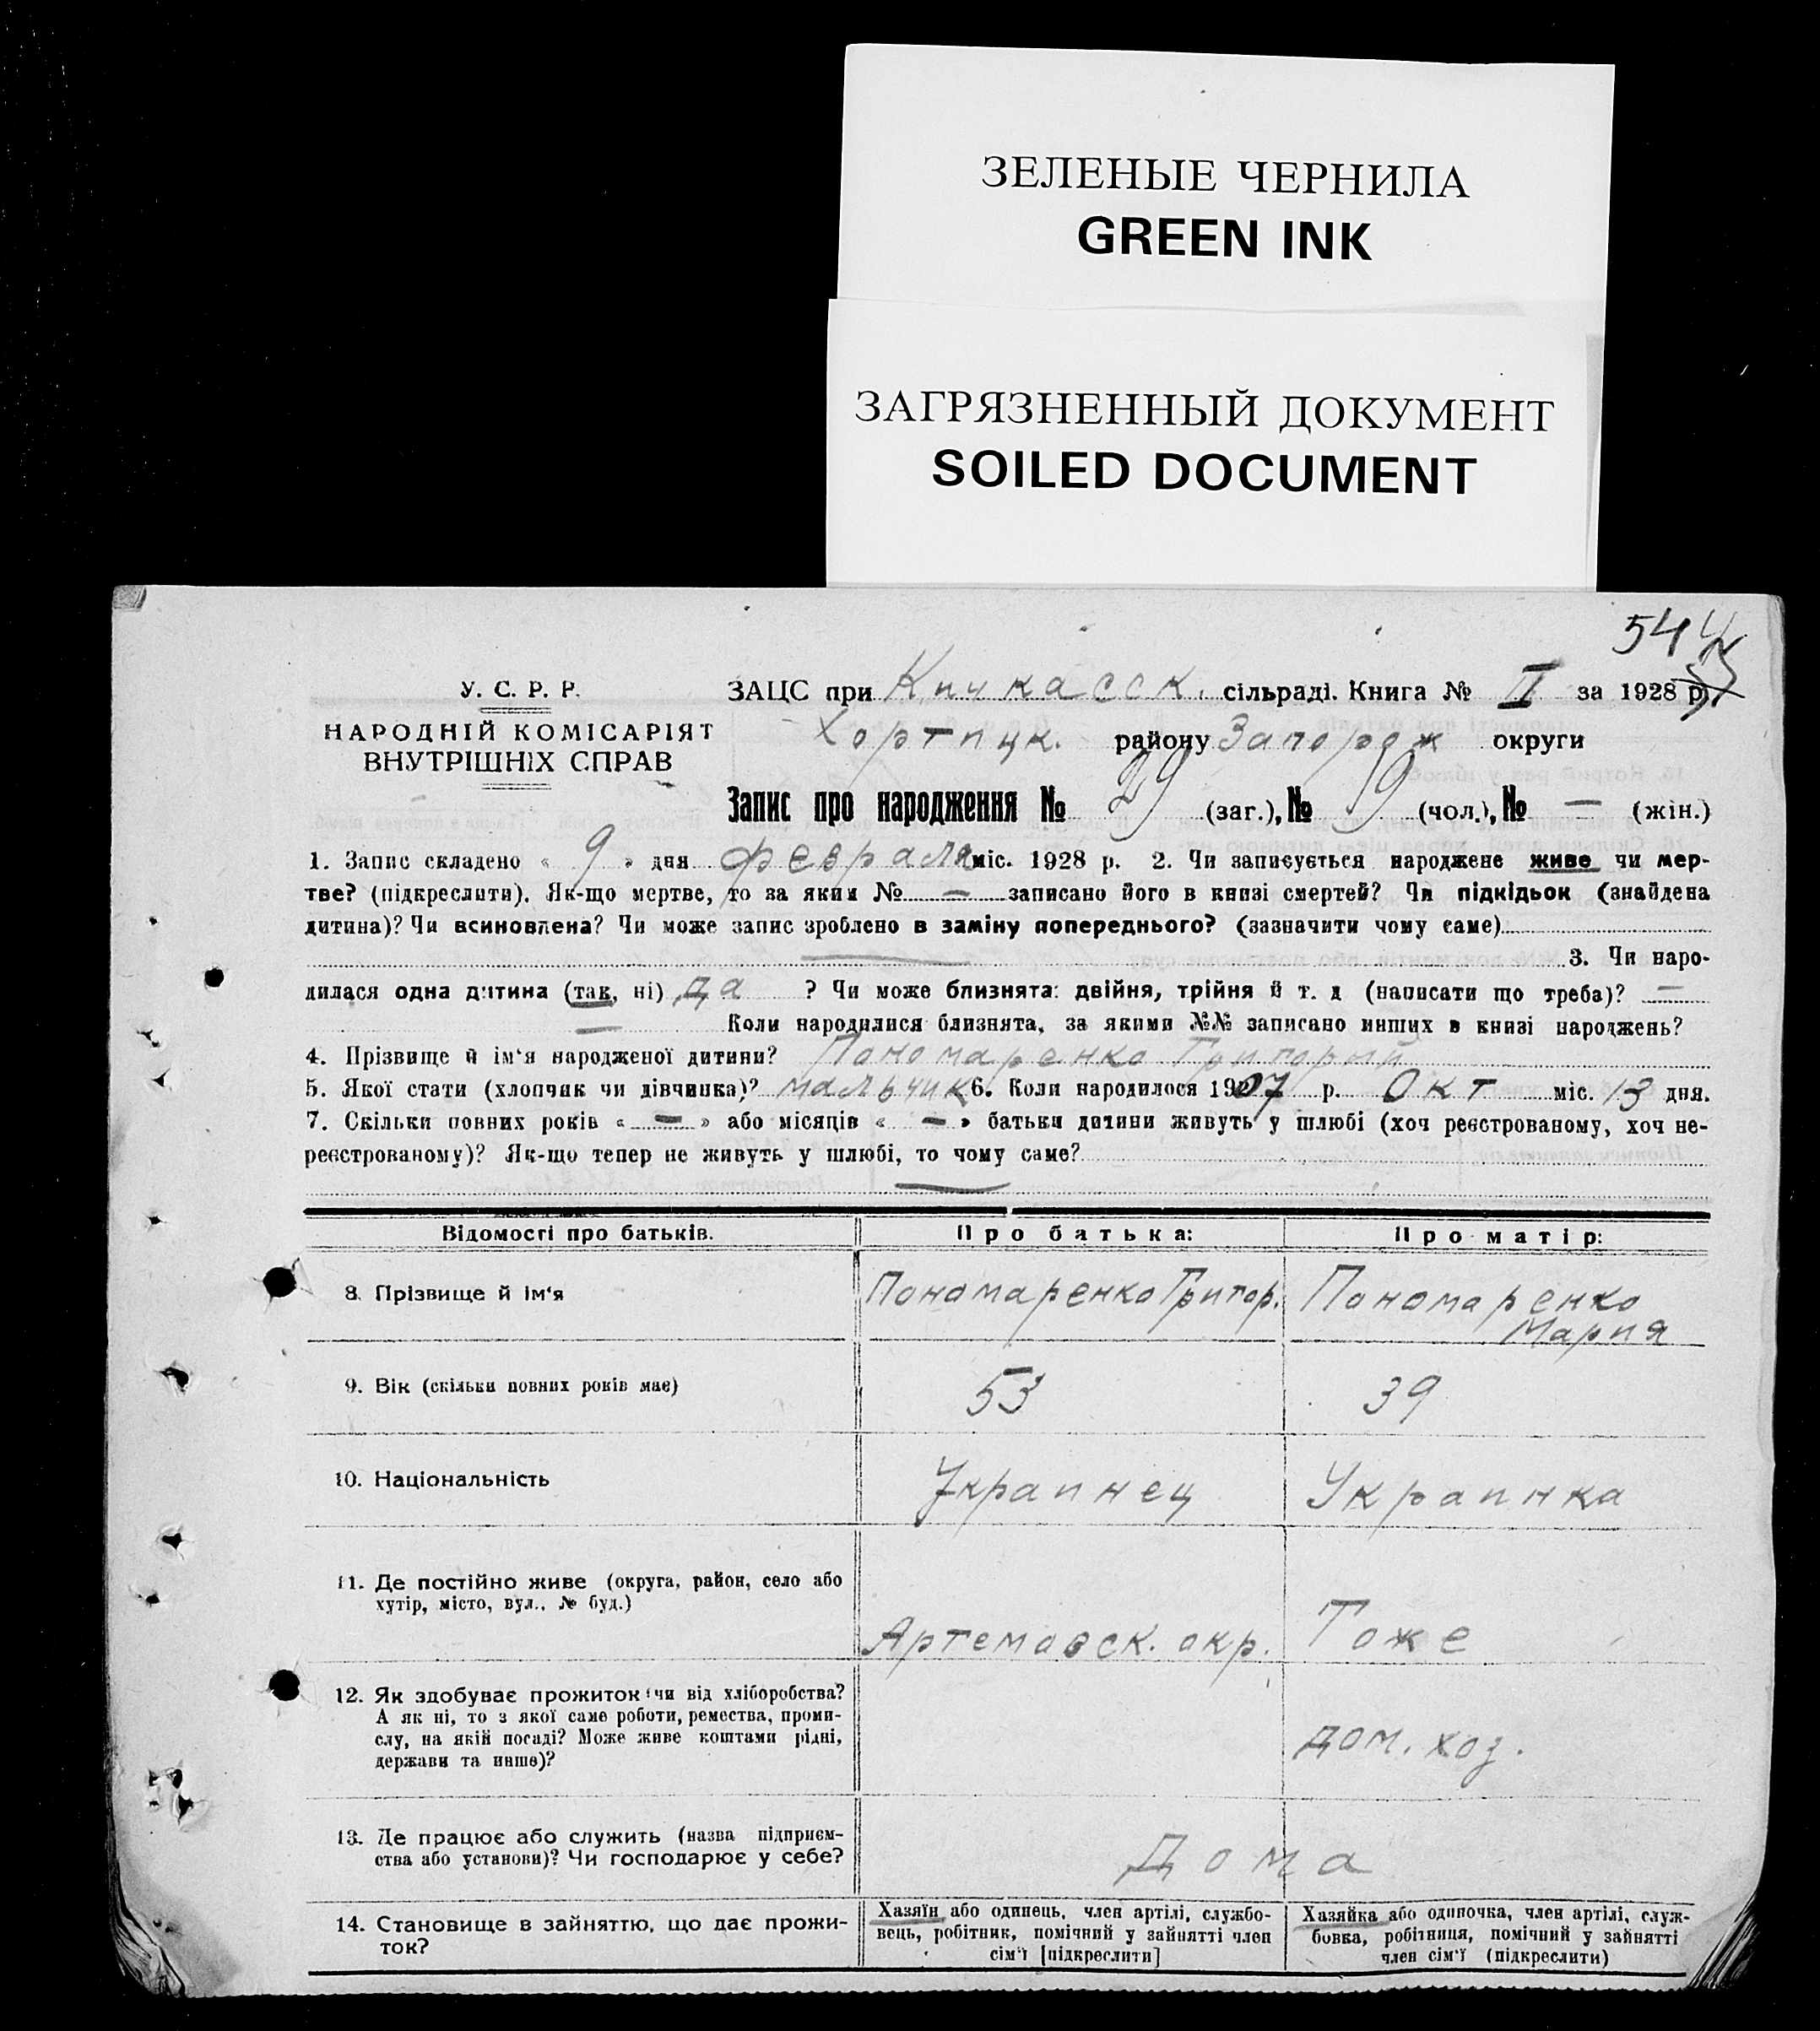 ЗЕЛЕНЫЕ ЧЕРНИЛА
GREEN INK
ЗАГРЯЗНЕННЫЙ ДОКУМЕНТ
SOILED DOCUMENT
544
У. С. Р. Р.
НАРОДНІЙ КОМІСАРІЯТ
ВНУТРІШНІХ СПРАВ
ЗАЦС при Кичкасск. сільраді. Книга № II за 1928 р.
Хортицк. району Запорож округи
Запис про народження № 29 (заг.), № 19 (чол.), № — (жін.)
1. Запис складено « 9 » дня февраля міс. 1928 р. 2. Чи записується народжене живе чи мер-
тве? (підкреслити). Як-що мертве, то за яким № — записано його в книзі смертей? Чи підкідьок (знайдена
дитина)? Чи всиновлена? Чи може запис зроблено в заміну попереднього? (зазначити чому саме)
— 3. Чи наро-
дилася одна дитина (так, ні) да ? Чи може близнята: двійня, трійня й т. д (написати що треба)? —
— Коли народилися близнята, за якими №№ записано инших в книзі народжень?
4. Прізвище й ім'я народженої дитини? Пономаренко Григорий
5. Якої стати (хлопчик чи дівчинка)? мальчик 6. Коли народилося 1907 р. Окт міс. 13 дня.
7. Скільки повних років « — » або місяців « — » батьки дитини живуть у шлюбі (хоч реєстрованому, хоч не-
реєстрованому)? Як-що тепер не живуть у шлюбі, то чому саме?
—
Відомості про батьків. Про батька: Про матір:
8. Прізвище й ім'я Пономаренко Григор. Пономаренко Мария
9. Вік (скільки повних років має) 53 39
10. Національність Украинец Украинка
11. Де постійно живе (округа, район, село або
хутір, місто, вул., № буд.) Артемовск. окр. Тоже
12. Як здобуває прожиток (чи від хліборобства?
А як ні, то з якої саме роботи, ремества, проми-
слу, на якій посаді? Може живе коштами рідні,
держави та инше)? дом. хоз.
13. Де працює або служить (назва підприєм-
ства або установи)? Чи господарює у себе? Дома
14. Становище в зайняттю, що дає прожи-
ток?
Хазяїн або одинець, член артілі, службо-
вець, робітник, помічний у зайнятті член
сім'ї [підкреслити]
Хазяйка або одиночка, член артілі, служ-
бовка, робітниця, помічний у зайнятті
член сім'ї (підкреслити)